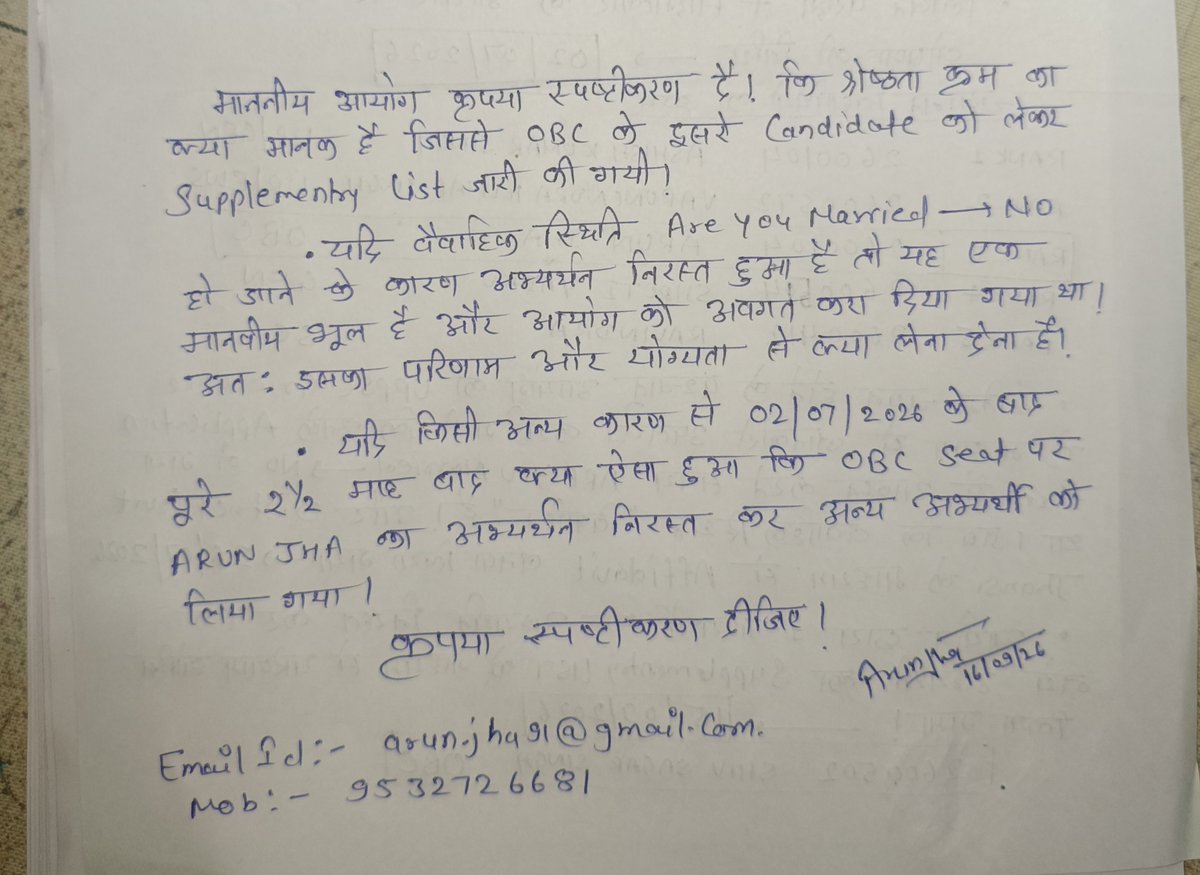 माननीय आयोग कृपया स्पष्टीकरण दें। कि श्रेष्ठता क्रम का
क्या मानक है जिससे OBC के दूसरे Candidate को लेकर
Supplementry List जारी की गयी।
• यदि वैवाहिक स्थिति Are you Married → NO
हो जाने के कारण अभ्यर्थन निरस्त हुआ है तो यह एक
मानवीय भूल है और आयोग को अवगत करा दिया गया था।
अतः इसका परिणाम और योग्यता से क्या लेना देना है।
• यदि किसी अन्य कारण से 02/07/2026 के बाद
पूरे 2½ माह बाद क्या ऐसा हुआ कि OBC seat पर
ARUN JHA का अभ्यर्थन निरस्त कर अन्य अभ्यर्थी को
लिया गया।
कृपया स्पष्टीकरण दीजिए।
Arun Jha
16/09/26
Email Id:- arun.jha91@gmail.com.
Mob:- 9532726681